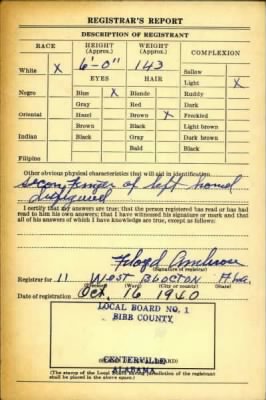 REGISTRAR'S REPORT
DESCRIPTION OF REGISTRANT
RACE HEIGHT (Approx.) WEIGHT (Approx.) COMPLEXION
White X 6'-0" 143 Sallow
EYES HAIR Light X
Negro Blue X Blonde Ruddy
Gray Red Dark
Oriental Hazel Brown X Freckled
Brown Black Light brown
Indian Black Gray Dark brown
Bald Black
Filipino
Other obvious physical characteristics that will aid in identification
Secon finger of left hand
disfigured
I certify that my answers are true; that the person registered has read or has had
read to him his own answers; that I have witnessed his signature or mark and that
all of his answers of which I have knowledge are true, except as follows:
Floyd Ambrose
(Signature of registrar)
Registrar for 11 West Blocton Ala.
(Precinct) (Ward) (City or county) (State)
Date of registration Oct. 16 1940
LOCAL BOARD NO. 1
BIBB COUNTY
CENTERVILLE
ALABAMA
(The stamp of the Local Board having jurisdiction of the registrant
shall be placed in the above space.)